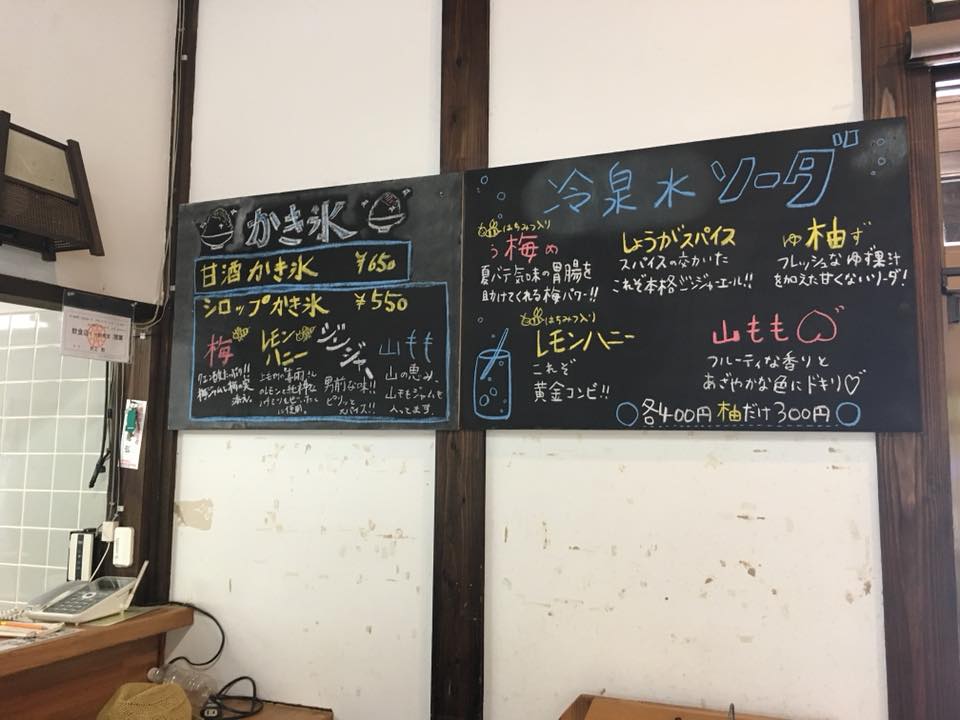 かき氷
甘酒かき氷 ¥650
シロップかき氷 ¥550
梅
梅ジャムと梅の実
レモン
ハニー
に使用。
ジンジャー
男前な味!!
ピリッと
スパイス!!
山もも
山の恵み、
山ももジャムも
入ってます。
冷泉水 ソーダ
はちみつ入り
う梅め
夏バテ気味の胃腸を
助けてくれる梅パワー!!
しょうがスパイス
スパイスの
これぞ本格ジンジャエール!!
ゆ柚ず
フレッシュなゆず果汁
を加えた甘くないソーダ!
はちみつ入り
レモンハニー
これぞ
黄金コンビ!!
山もも
フルーティな香りと
あざやかな色にドキリ♡
各400円 柚だけ300円